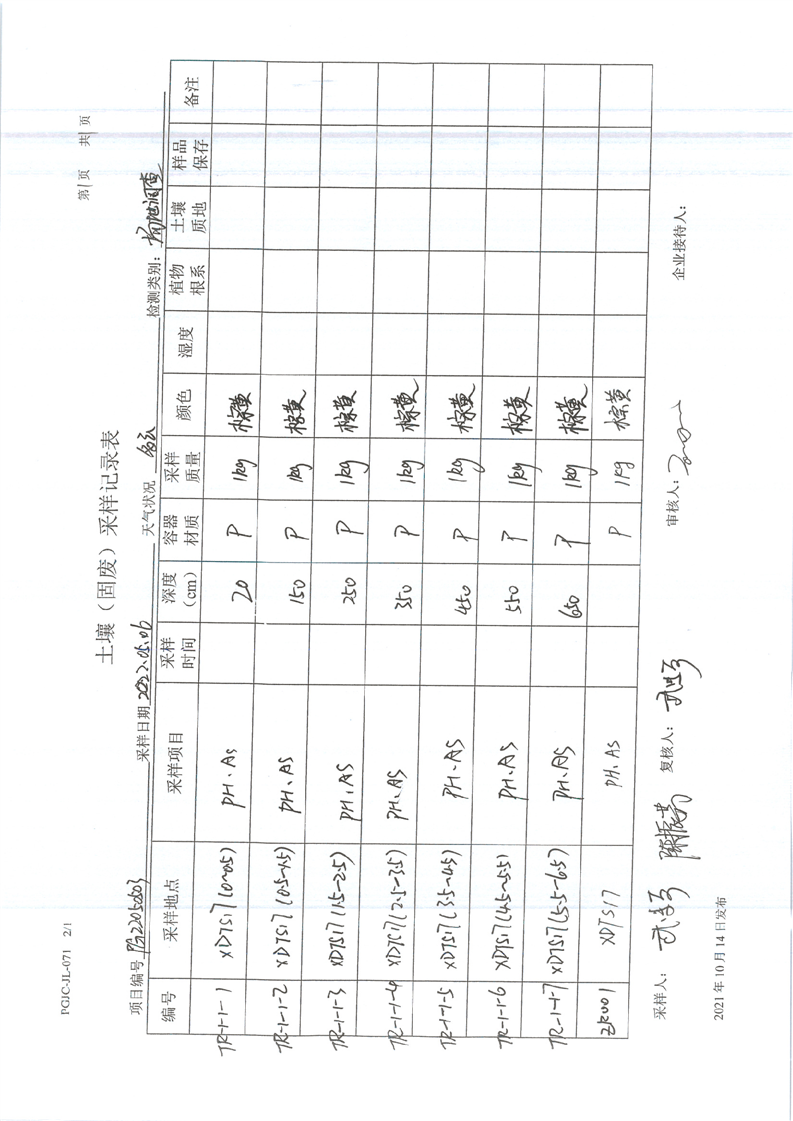 PGJC-JL-071 2/1
第1页 共1页
土壤（固废）采样记录表
项目编号 PG22050503 采样日期 2022.05.06 天气状况 多云 检测类别：场地调查
编号 采样地点 采样项目 采样时间 深度（cm） 容器材质 采样质量 颜色 湿度 植物根系 土壤质地 样品保存 备注
TR-1-1-1 XDTS17(0-0.5) pH、As 20 P 1kg 棕黄
TR-1-1-2 XDTS17(0.5-1.5) pH、AS 150 P 1kg 棕黄
TR-1-1-3 XDTS17(1.5-2.5) pH、AS 250 P 1kg 棕黄
TR-1-1-4 XDTS17(2.5-3.5) pH、AS 350 P 1kg 棕黄
TR-1-1-5 XDTS17(3.5-4.5) pH、AS 450 P 1kg 棕黄
TR-1-1-6 XDTS17(4.5-5.5) pH、AS 550 P 1kg 棕黄
TR-1-1-7 XDTS17(5.5-6.5) pH、AS 650 P 1kg 棕黄
ZK001 XDTS17 pH、AS P 1kg 棕黄
采样人： 复核人： 审核人： 企业接待人：
2021年10月14日发布